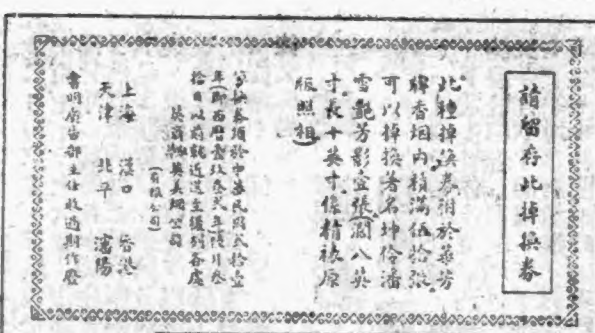 請留存此掉換券
此種掉換券附於
牌香烟内積滿伍拾張
可以掉換著名坤伶潘
雪艷芳影壹張濶八英
寸長十英寸係精裱原
版照相
年(即西曆壹玖叁 年)陸月叁
拾日以前就近送至後列各處
英商 英美烟公司
(有限公司)
上海 漢口 香港
天津 北平 瀋陽
書明廣告部主任收過期作廢